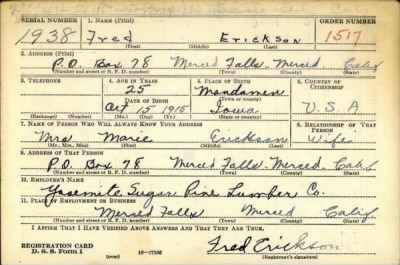 SERIAL NUMBER 1. NAME (Print) ORDER NUMBER
1938 Fred Erickson 1517
(First) (Middle) (Last)
2. ADDRESS (Print)
P.O. Box 78 Merced Falls. Merced. Calif
(Number and street or R. F. D. number) (Town) (County) (State)
3. TELEPHONE 4. AGE IN YEARS 5. PLACE OF BIRTH 6. COUNTRY OF CITIZENSHIP
25 Mondamen
DATE OF BIRTH (Town or county)
Oct 15 1915 Iowa U.S.A
(Exchange) (Number) (Mo.) (Day) (Yr.) (State or country)
7. NAME OF PERSON WHO WILL ALWAYS KNOW YOUR ADDRESS 8. RELATIONSHIP OF THAT PERSON
Mrs Marie Erickson Wife
(Mr., Mrs., Miss) (First) (Middle) (Last)
9. ADDRESS OF THAT PERSON
P.O. Box 78 Merced Falls. Merced. Calif.
(Number and street or R. F. D. number) (Town) (County) (State)
10. EMPLOYER'S NAME
Yosemite Sugar Pine Lumber Co.
11. PLACE OF EMPLOYMENT OR BUSINESS
Merced Falls Merced Calif
(Number and street or R. F. D. number) (Town) (County) (State)
I AFFIRM THAT I HAVE VERIFIED ABOVE ANSWERS AND THAT THEY ARE TRUE.
REGISTRATION CARD
D. S. S. Form 1 (over) Fred Erickson
(Registrant's signature)